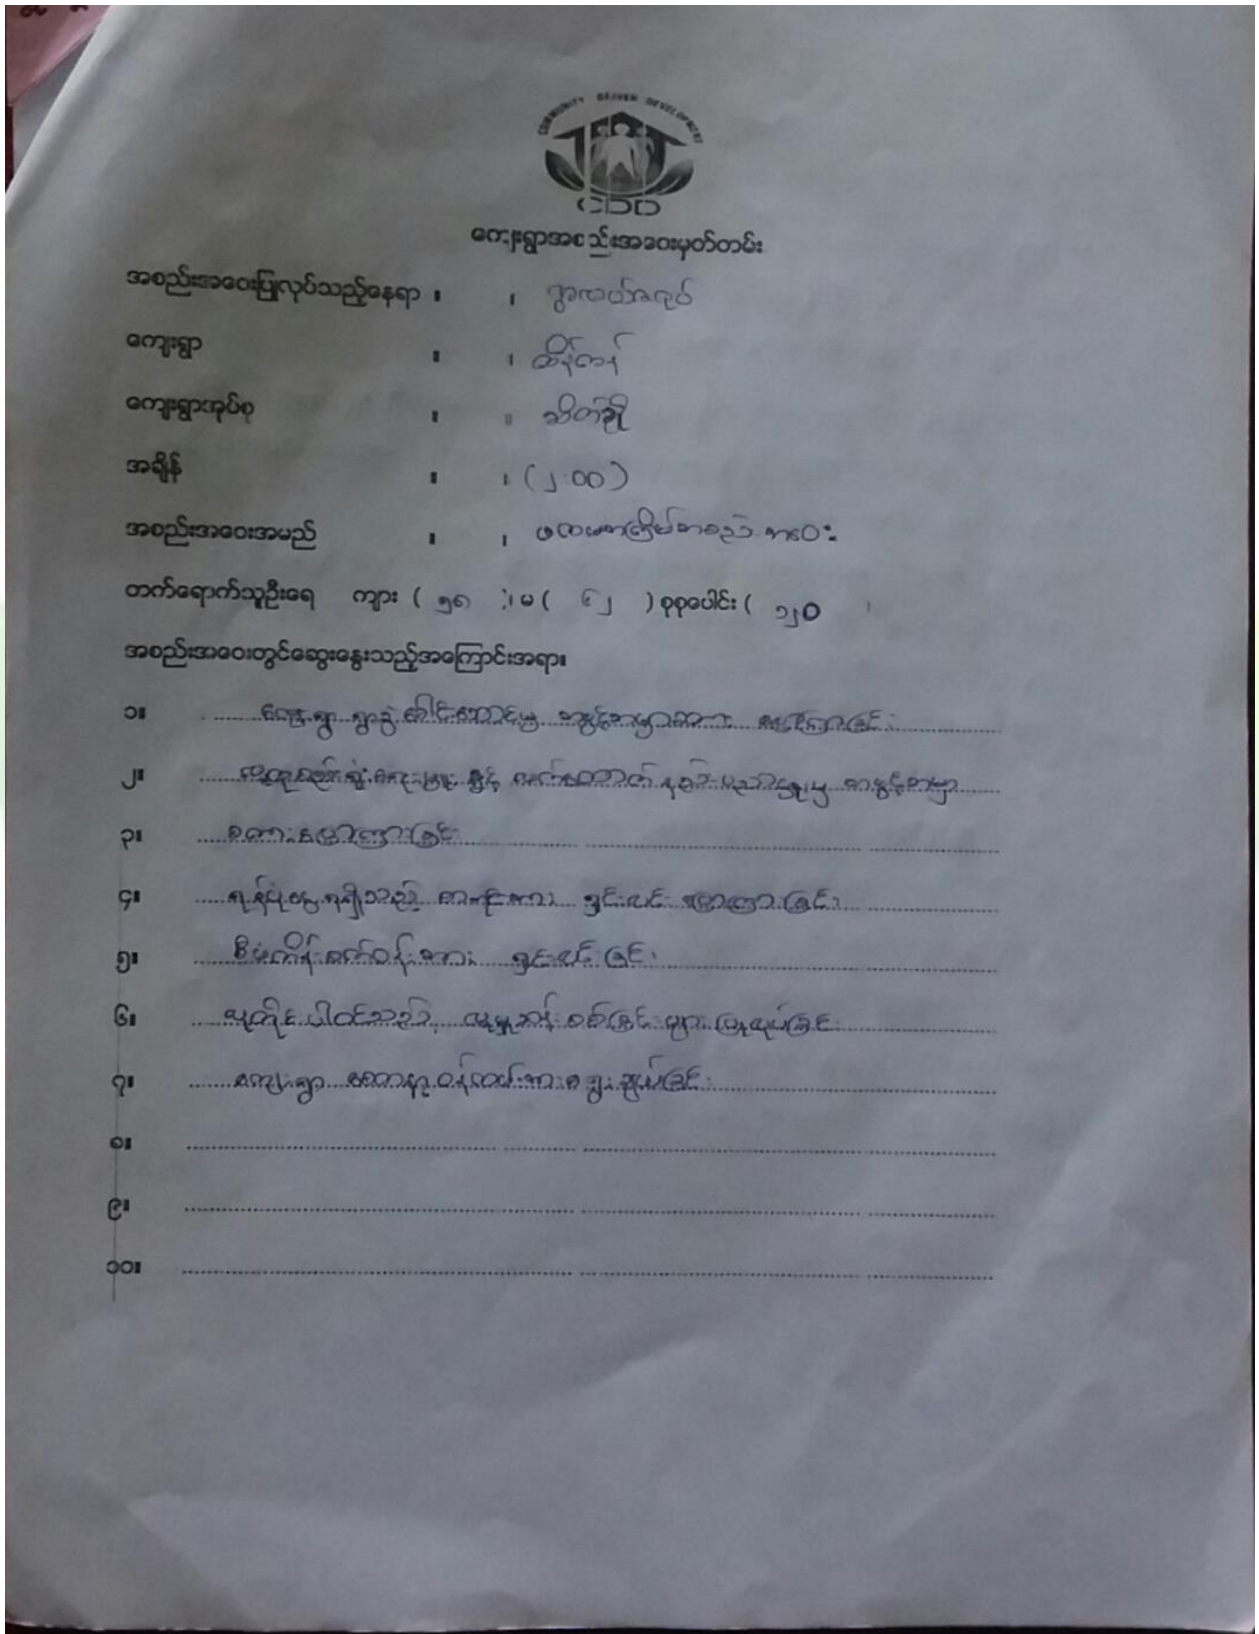 COMMUNITY DRIVEN DEVELOPMENT
CDD
ကျေးရွာအစည်းအဝေးမှတ်တမ်း
အစည်းအဝေးပြုလုပ်သည့်နေရာ ။ ။ ရွာလယ်ဇရပ်
ကျေးရွာ ။ ။ ထိန်ကန်
ကျေးရွာအုပ်စု ။ ။ ညိတ်ညို
အချိန် ။ ။ (၂:၀၀)
အစည်းအဝေးအမည် ။ ။ ပထမအကြိမ်အစည်းအဝေး
တက်ရောက်သူဦးရေ ကျား ( ၅၈ )၊ မ ( ၆၂ ) စုစုပေါင်း ( ၁၂၀
အစည်းအဝေးတွင်ဆွေးနွေးသည့်အကြောင်းအရာ။
၁။ ကျေးရွာ ရွာခွဲ ခေါင်းဆောင်မှ အဖွင့်အမှာစကား ပြောကြားခြင်း
၂။ လူထုစည်းရုံးရေးမှူး နှင့် လက်ထောက်နည်းပညာမှူးမှ အဖွင့်အမှာ
၃။ စကားပြောကြားခြင်း
၄။ ရန်ပုံငွေရရှိသည့် အကြောင်း ရှင်းလင်း ပြောကြားခြင်း
၅။ စီမံကိန်းစက်ဝန်းအား ရှင်းလင်းခြင်း
၆။ လူတိုင်းပါဝင်သည့် လူမှုဆန်းစစ်ခြင်းများ ပြုလုပ်ခြင်း
၇။ ကျေးရွာ စေတနာ့ဝန်ထမ်းအား ရွေးချယ်ခြင်း
၈။
၉။
၁၀။